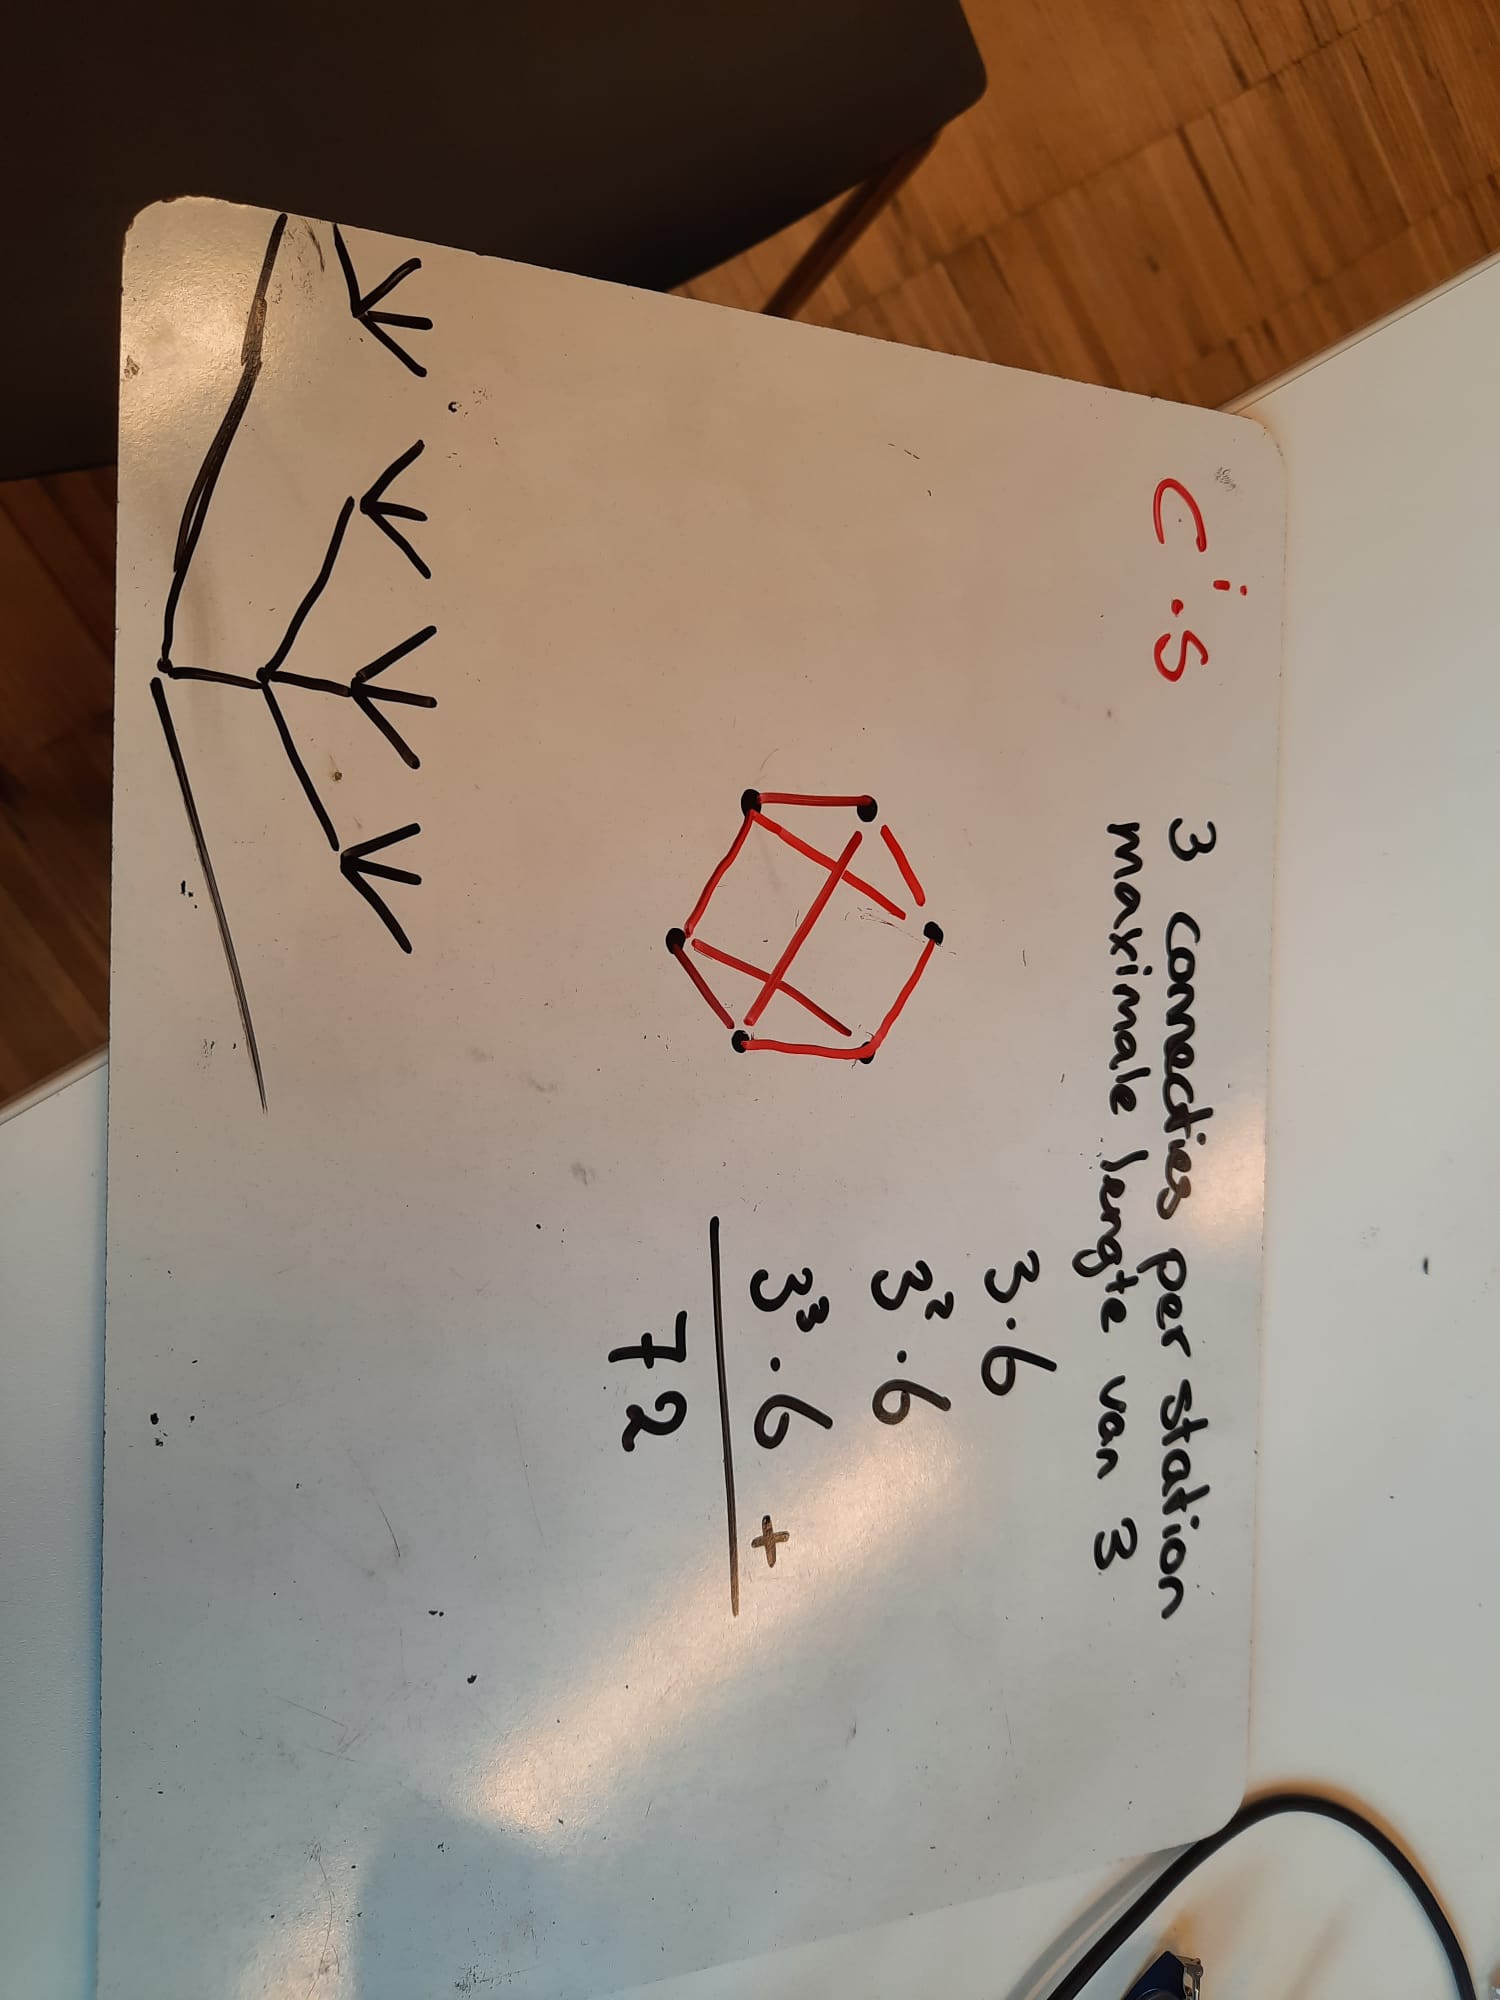 cⁱ·s
3 connecties per station
maximale lengte van 3
3·6
3²·6
3³·6 +
72